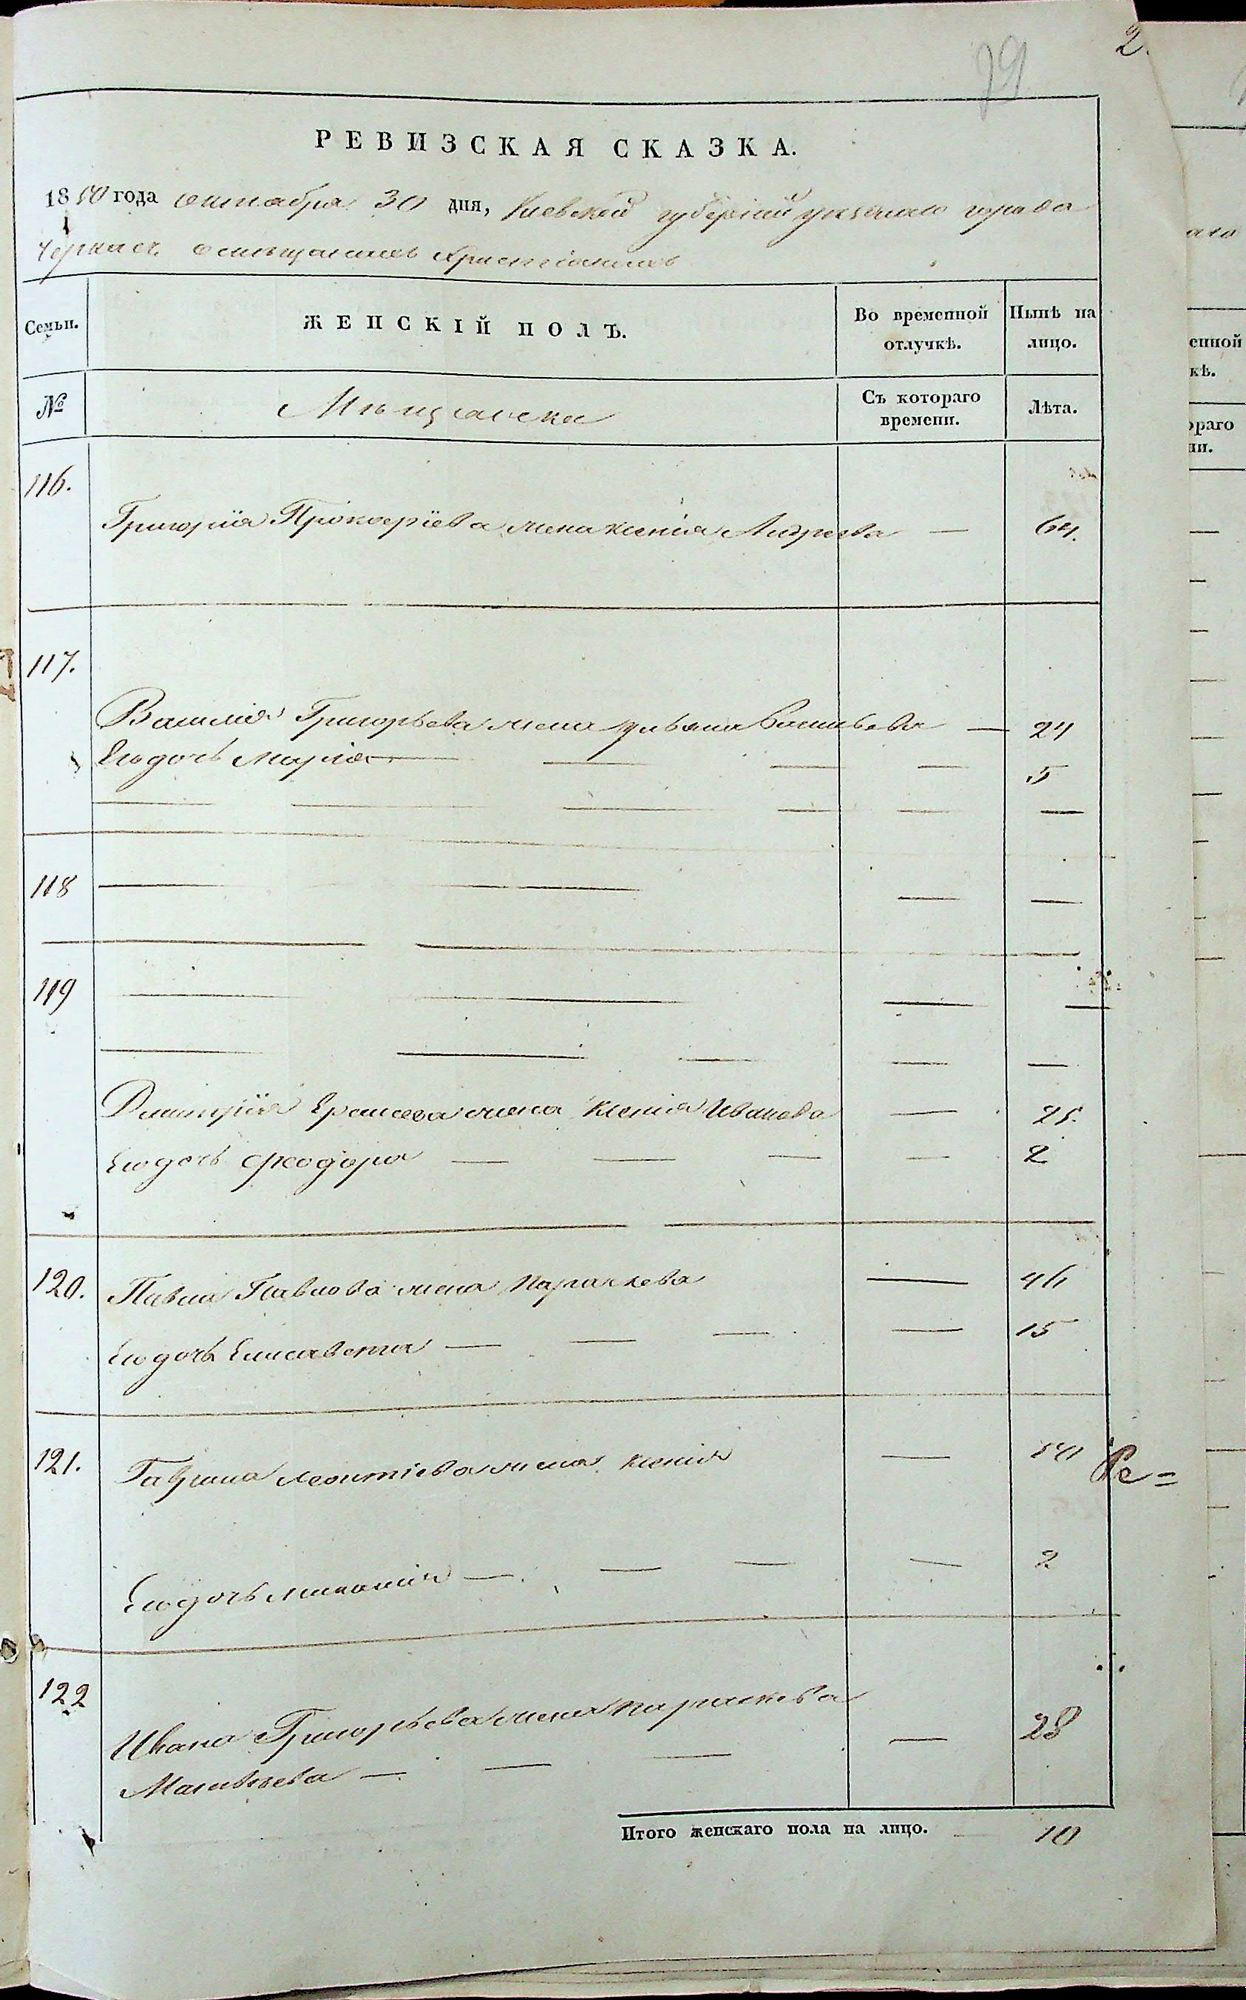 2.
79
РЕВИЗСКАЯ СКАЗКА.
1850 года октября 30 дня, Киевской губернии уезднаго города
Черкас о мещанах Христианах
Семьи.
ЖЕНСКІЙ ПОЛЪ.
Во временной отлучкѣ.
Нынѣ на лицо.
№
Мещанска
Съ котораго времени.
Лѣта.
116.
Григорія Прокофіева жена Ксенія Андреева — 64.
117.
Василія Григорьева жена Ульяна Васильева — 24
Его дочь Марія — — — — 5
118
119
Дмитрія жена Ксенія Иванова — 25.
Его дочь Феодора — — — — 2
120.
Павла Павлова жена Параскева — 46
Его дочь Елисавета — — — — 15
121.
Гаврила Леонтіева жена Ксенія — 50
Его дочь — — — — 2
122
Ивана Григорьева жена Параскева
Матвѣева — — — — 28
Ре=
Итого женскаго пола на лицо. 10